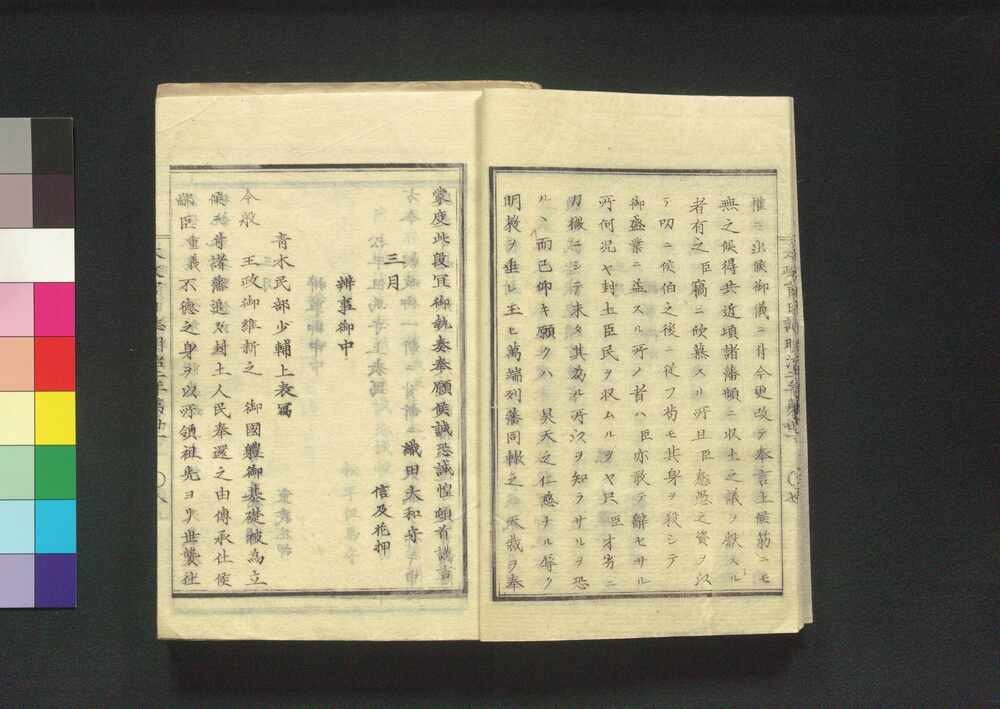 惟ニ出候御儀ニ付今更改テ奉言上候筋ニモ
無之候得共近頃諸藩頻ニ収土之議ヲ献スル
者有之臣竊ニ欣慕スル所且臣愚憑之資ヲ以
テ叨ニ侯伯之後ニ従フ苟モ其身ヲ殺シテ
御盛業ニ益スル所ノ者ハ臣亦敢テ辭セサル
所何況ヤ封土臣民ヲ収ムルヲヤ只臣才劣ニ
ノ機ニシテ未タ其為ル所以ヲ知ラサルヲ恐
ルヽ而已仰キ願クハ昊天之仁慈ナル辱ク
明教ヲ垂レ玉ヒ萬端列藩同轍之天裁ヲ奉
蒙度此段宜御執奏奉願候誠恐誠惶頓首謹言
織田大和守
三月 信及花押
辨事御中
青木民部少輔上表寫
今般 王政御維新之 御國體御基礎被為立
候ニ付諸藩追々封土人民奉還之由傳承仕候
鄙臣重義不德之身ヲ以所領祖先ヨリ世襲仕